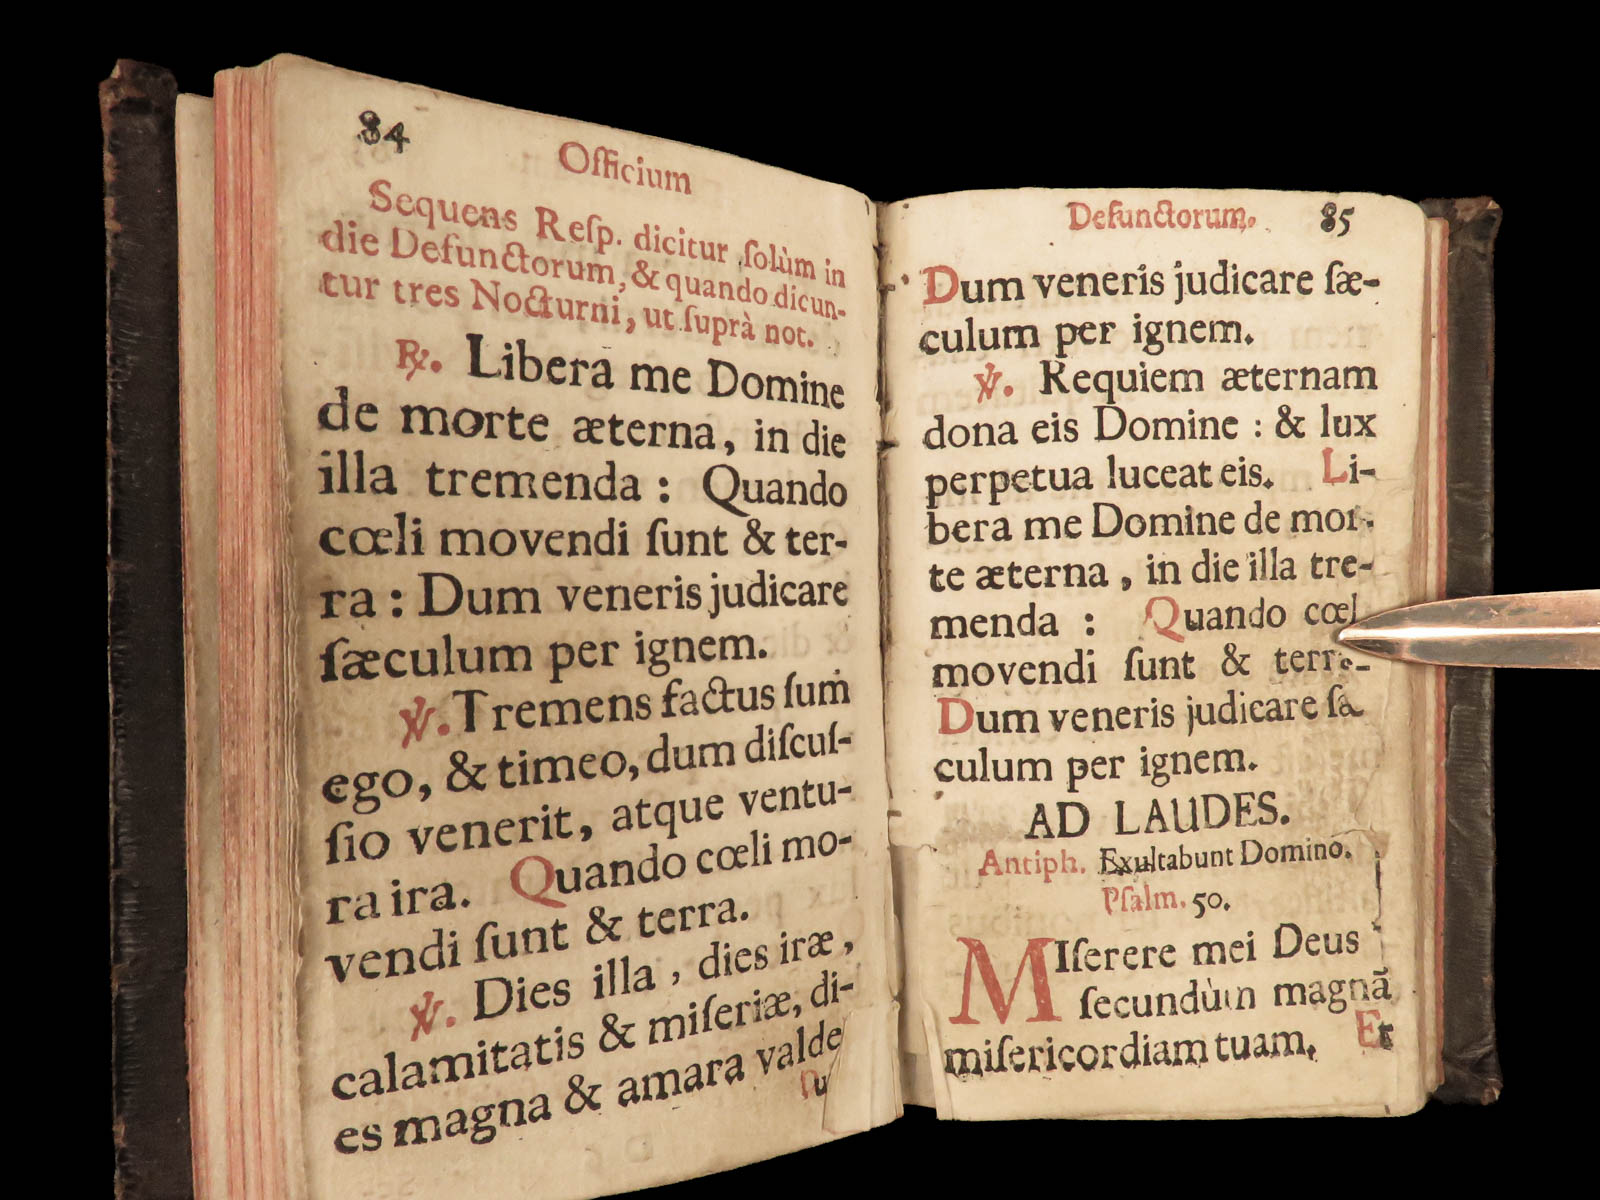 84
Officium
Sequens Reſp. dicitur ſolùm in
die Defunctorum, & quando dicun-
tur tres Nocturni, ut ſuprà not.
℟. Libera me Domine
de morte æterna, in die
illa tremenda : Quando
cœli movendi ſunt & ter-
ra : Dum veneris judicare
ſæculum per ignem.
℣. Tremens factus ſum
ego, & timeo, dum diſcuſ-
ſio venerit, atque ventu-
ra ira. Quando cœli mo-
vendi ſunt & terra.
℣. Dies illa, dies iræ,
calamitatis & miſeriæ, di-
es magna & amara valde
Defunctorum.
85
Dum veneris judicare ſæ-
culum per ignem.
℣. Requiem æternam
dona eis Domine : & lux
perpetua luceat eis. Li-
bera me Domine de mor-
te æterna, in die illa tre-
menda : Quando cœl
movendi ſunt & terr
Dum veneris judicare ſæ
culum per ignem.
AD LAUDES.
Antiph. Exultabunt Domino.
Pſalm. 50.
MIſerere mei Deus
ſecundùm magnã
miſericordiam tuam.
Et